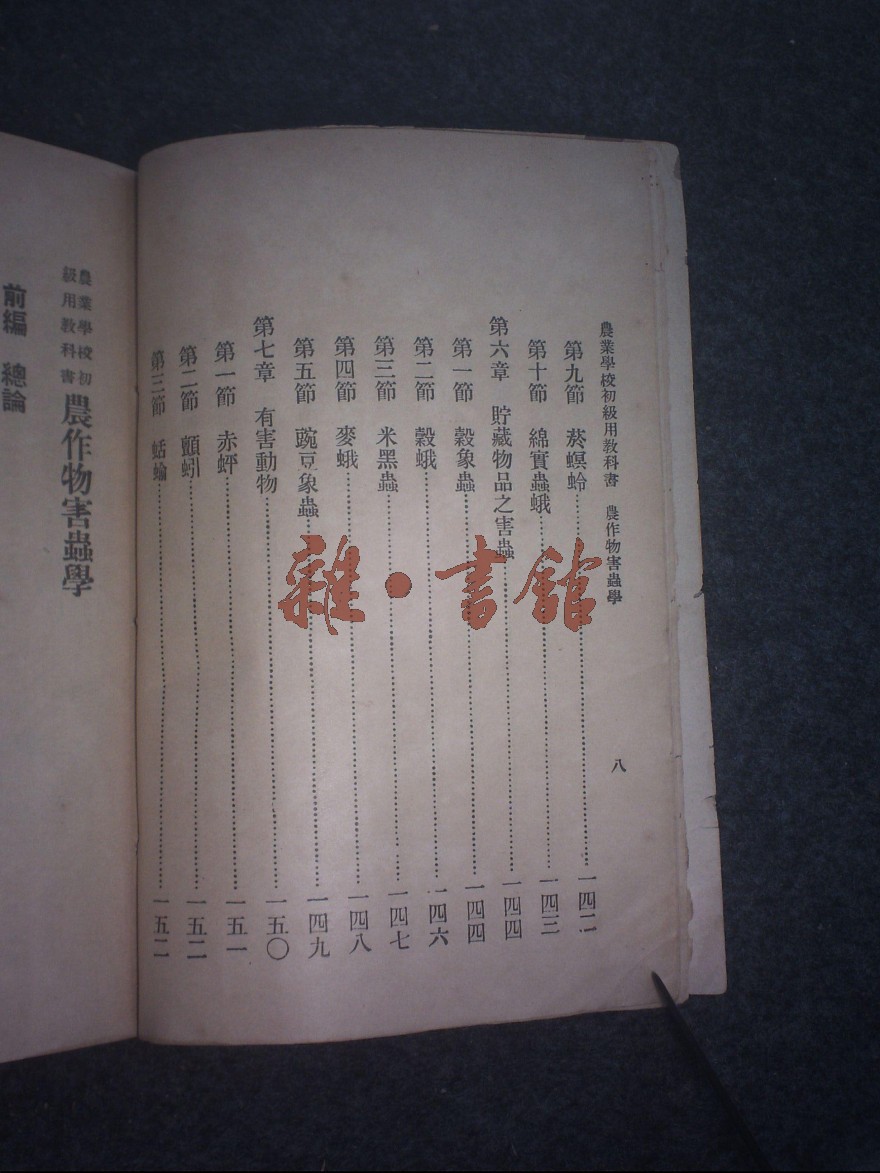 農業學校初級用教科書　農作物害蟲學　八
第九節　菸螟蛉……一四二
第十節　綿實蟲蛾……一四三
第六章　貯藏物品之害蟲……一四四
第一節　穀象蟲……一四四
第二節　穀蛾……一四六
第三節　米黑蟲……一四七
第四節　麥蛾……一四八
第五節　豌豆象蟲……一四九
第七章　有害動物……一五〇
第一節　赤蝉……一五一
第二節　顫蚓……一五二
第三節　蛞蝓……一五二
農業學校初級用教科書 農作物害蟲學
前編　總論
雜·書館